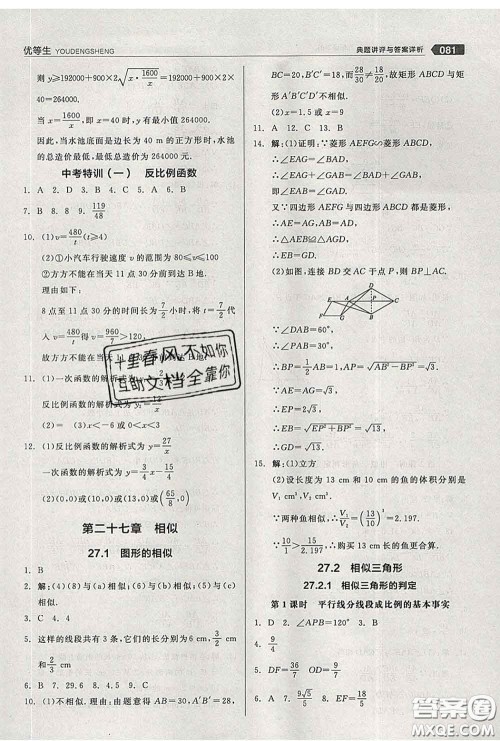 优等生 YOUDENGSHENG
典题讲评与答案详析 081
则 y≥192000+900×2√(x·1600/x)=264000.
当 x=1600/x,即 x=40 时,y 有最小值 264000.
因此,当水池底面是边长为 40 m 的正方形时,水池的总造价最低,最低总造价为 264000 元.
中考特训(一) 反比例函数
1. A 2. D 3. B 4. C 5. A 6. C
7. B 8. 8 9. 119/48
10. (1)v=480/t(t≥4)
(2)①小汽车行驶速度 v 的范围为 80≤v≤100
②方方不能在当天 11 点 30 分前到达 B 地.
理由如下:
8 点至 11 点 30 分的时间长为 7/2 小时,将 t=7/2
代入 v=480/t,得 v=960/7>120.
故方方不能在当天 11 点 30 分前
11. (1)一次函数的解析式为
反比例函数的解析式为
(2)(3)x<-6 或 0<x<
12. (1)反比例函数的解析式为 y=27/x
一次函数的解析式为 y=3/4x-15/4
(2)(0,0)或(10,0)或(16,0)或(65/8,0)
第二十七章 相似
27.1 图形的相似
1. B
2. 解:(4)(8)与(a)相似;(6)与(b)相似;(5)与(c)相似.
3. A 4. C
5. 这样的线段共有三条,它们的长分别为 6 cm,3/2 cm
和 8/3 cm.
6. B 7. 7 8. 9 9. D
10. (1)不相似,理由:由题意得 AB=30,A′B′=28,
BC=20,B′C′=18,而 28/30≠18/20,故矩形 ABCD 与矩形 A′B′C′D′不相似.
(2)x=1.5 或 9
11. A 12. C 13. B
14. 解:(1)证明:∵菱形 AEFG∽菱形 ABCD,
∴∠EAG=∠BAD.
∴∠EAG+∠GAB=∠BAD+∠GAB.
∴∠EAB=∠GAD.
又∵四边形 AEFG 与四边形 ABCD 是菱形,
∴AE=AG,AB=AD.
∴△AEB≌△AGD.
∴EB=GD.
(2)如图,连接 BD 交 AC 于点 P,则 BP⊥AC.
∵∠DAB=60°,
∴∠PAB=30°.
∴BP=1/2AB=1.
∴EP=2√3.
∴EB=√(EP²+BP²)=√13.
∴GD=√13.
15. 解:(1)立方
(2)设长度为 13 cm 和 10 cm 的鱼的体积分别是
V₁ cm³,V₂ cm³,则 V₁/V₂=(13/10)³=2.197.
∵两种鱼味美相同,
∴质量比=V₁/V₂=2.197.
27.2 相似三角形
27.2.1 相似三角形的判定
第 1 课时 平行线分线段成比例的基本事实
1. D 2. ∠APB=120° 3. A
4. 9/4
5. DF=36/7 GF=39/7
6. A 7. 9√5/5 8. 3/2 9. D
十里春风不如你
互助文档全靠你
答案圈
MXQE.COM